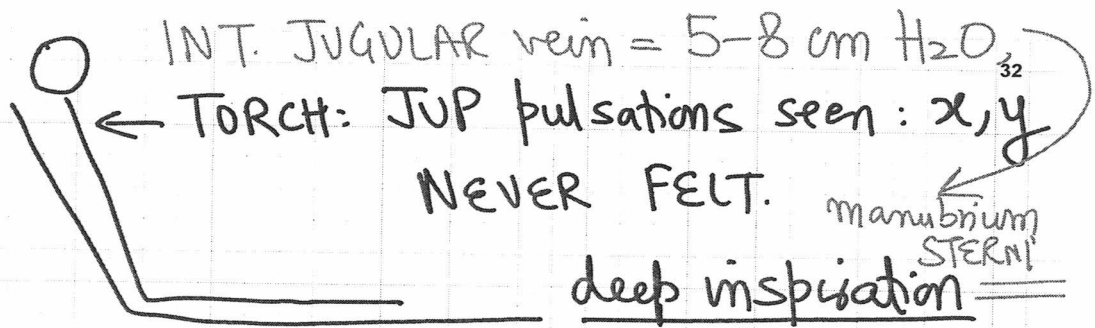 INT. JUGULAR vein = 5-8 cm H2O,
32
← TORCH: JUP pulsations seen: x, y
NEVER FELT.
manubrium
STERNI
deep inspiration